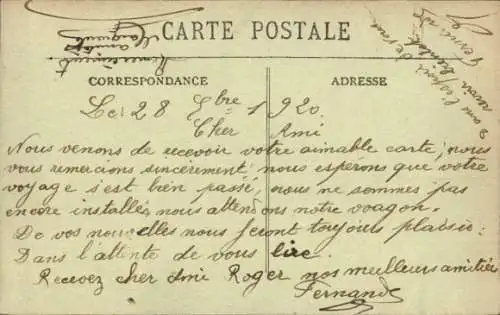 CARTE POSTALE
CORRESPONDANCE
ADRESSE
Le: 28 7bre 1920.
Cher Ami
Nous venons de recevoir votre aimable carte; nous
vous remercions sincèrement; nous espérons que votre
voyage s'est bien passé, nous ne sommes pas
encore installés, nous attendons notre wagon.
De vos nouvelles nous feront toujours plaisir:
Dans l'attente de vous lire.
Recevez cher Ami Roger nos meilleurs amitiés
Fernande